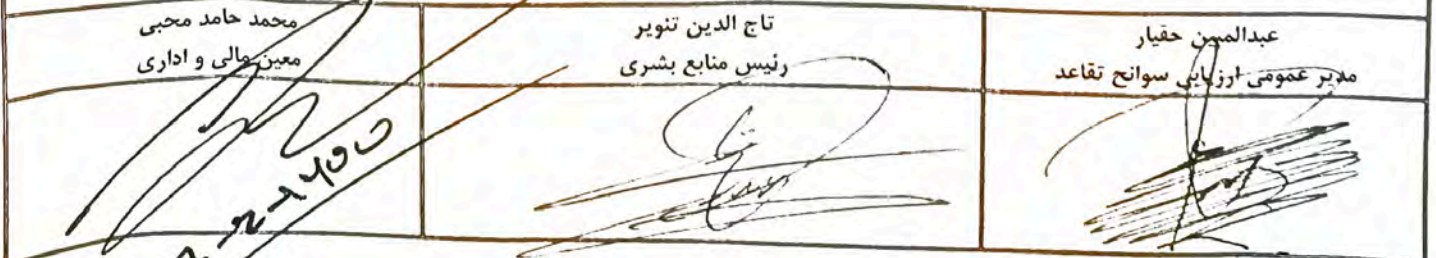 عبدالمبین حقیار
مدیر عمومی ارزیابی سوانح تقاعد
تاج الدین تنویر
رئیس منابع بشری
محمد حامد محبی
معین مالی و اداری